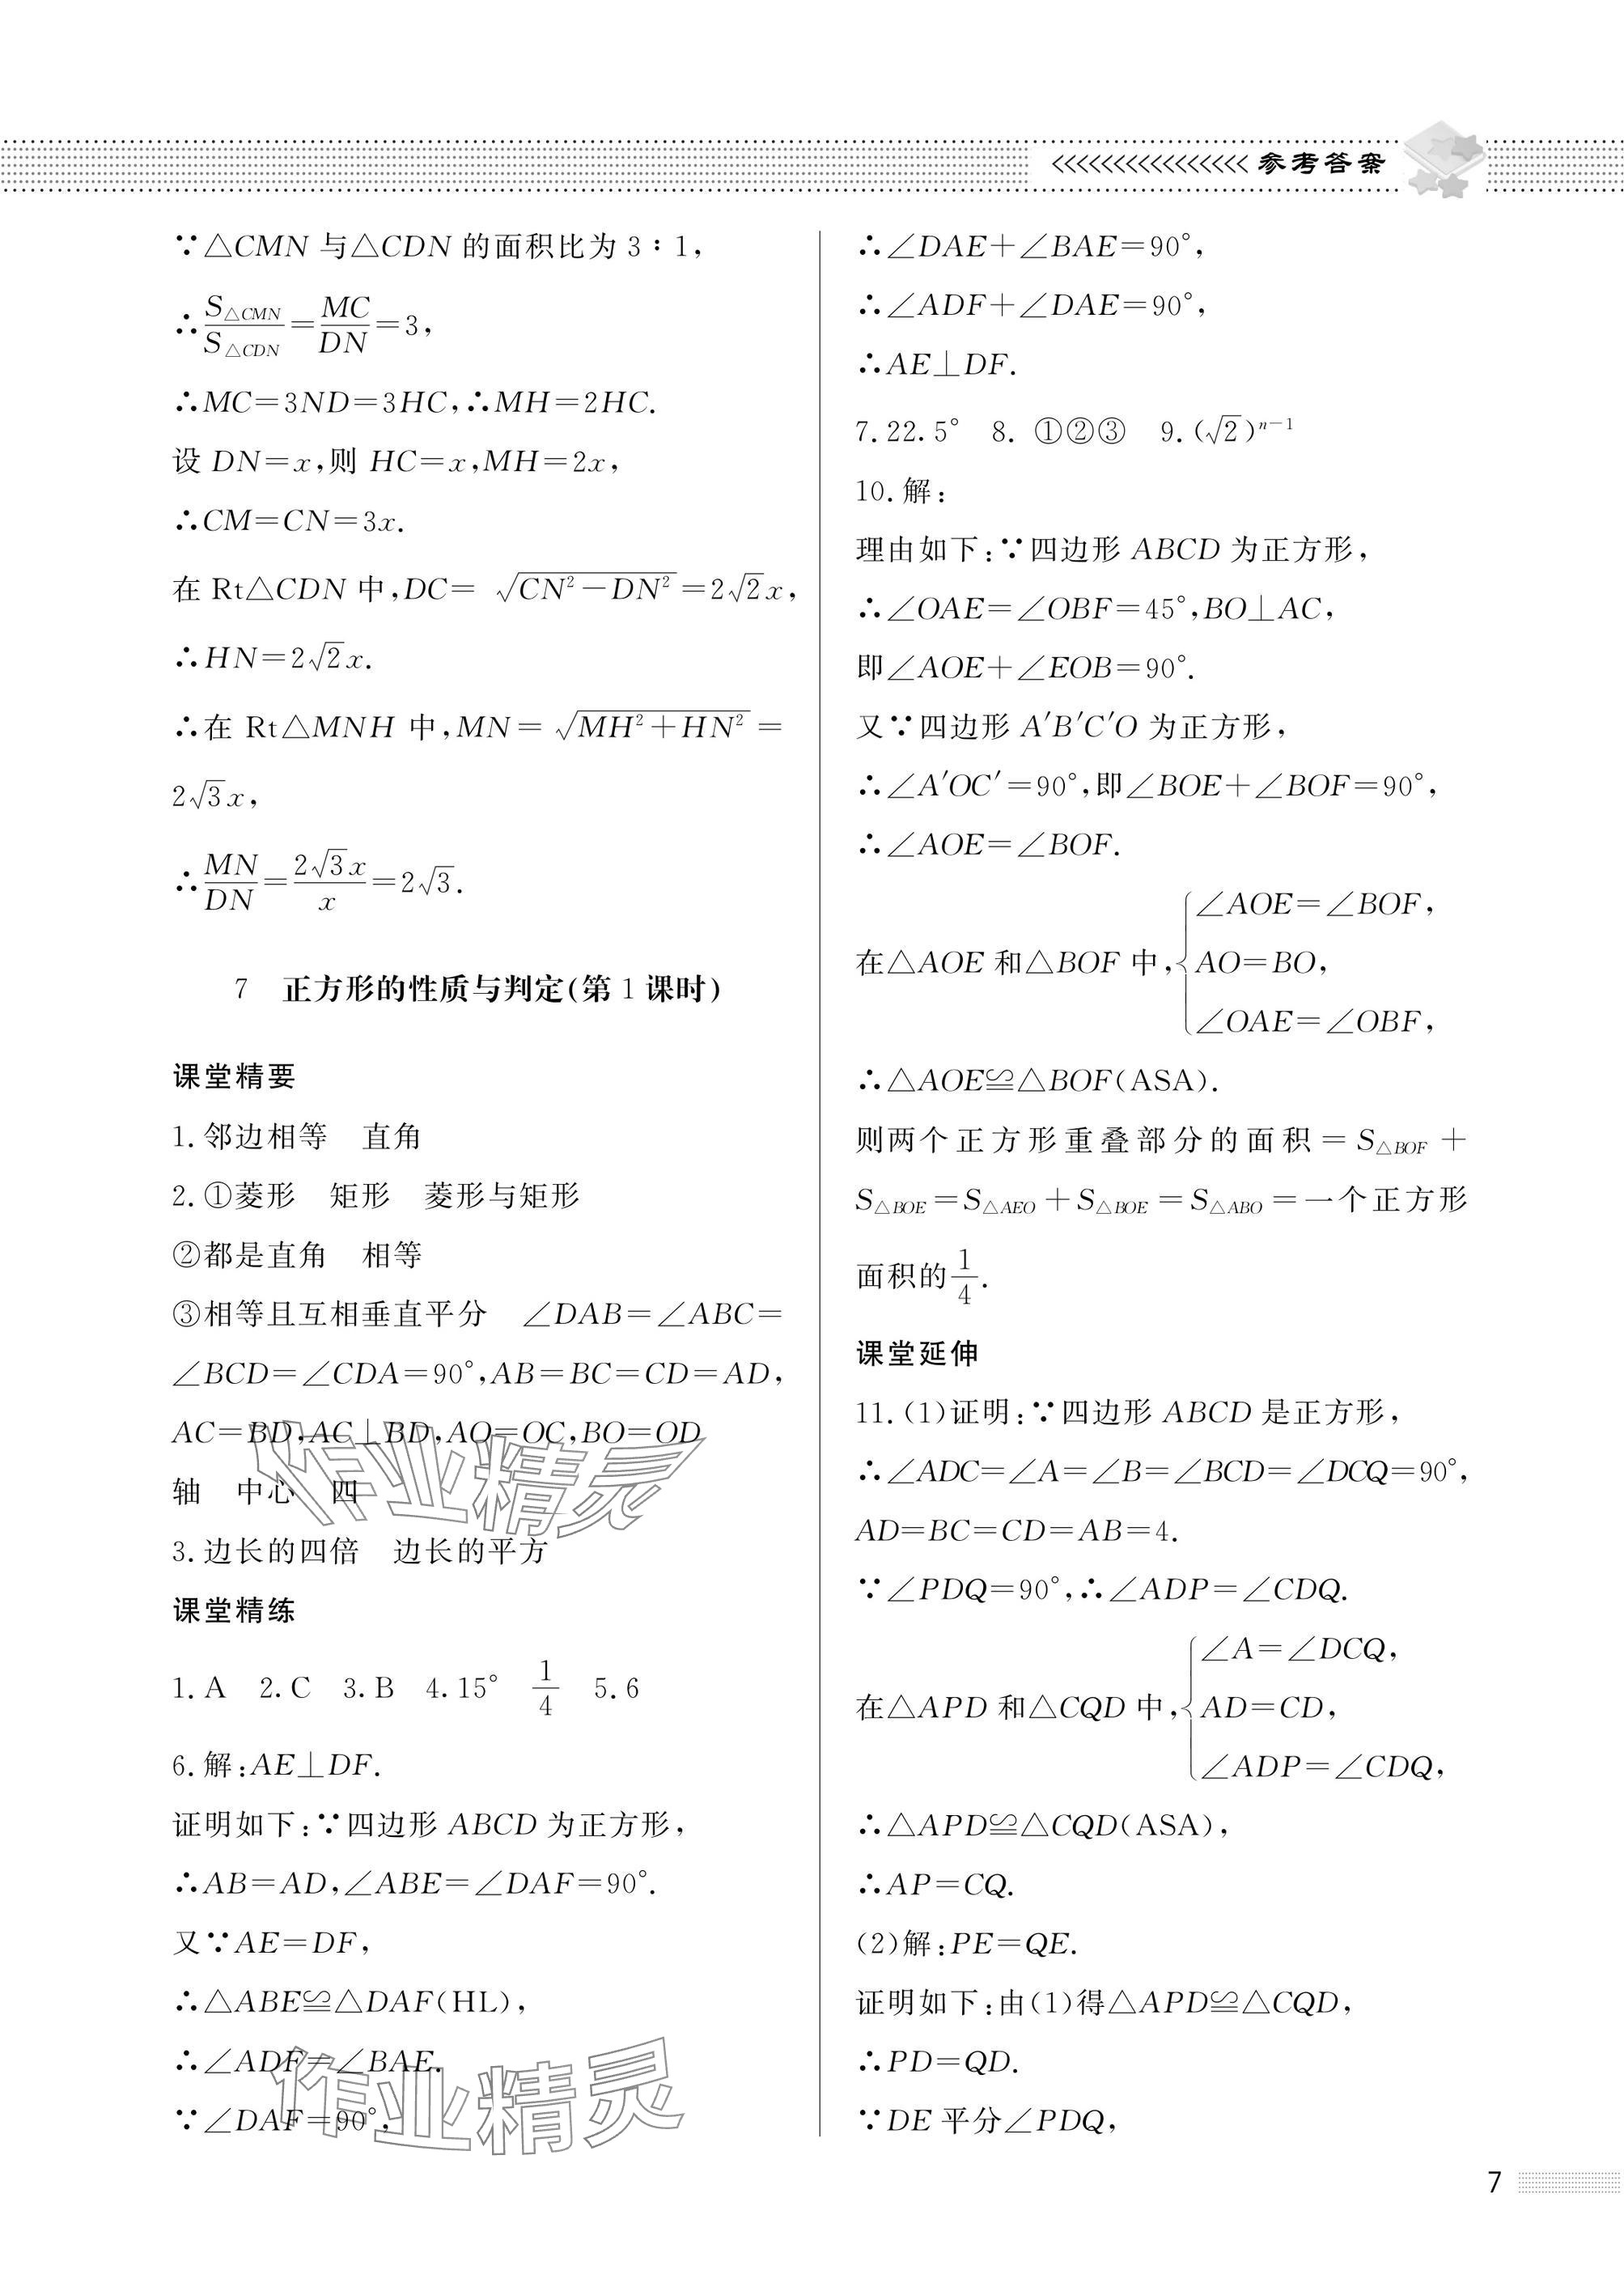 <<<<<<<<<<<<<<< 参考答案
∵△CMN 与△CDN 的面积比为 3∶1,
∴S△CMN/S△CDN=MC/DN=3,
∴MC=3ND=3HC,∴MH=2HC.
设 DN=x,则 HC=x,MH=2x,
∴CM=CN=3x.
在 Rt△CDN 中,DC=√(CN²-DN²)=2√2x,
∴HN=2√2x.
∴在 Rt△MNH 中,MN=√(MH²+HN²)=
2√3x,
∴MN/DN=2√3x/x=2√3.
7 正方形的性质与判定(第 1 课时)
课堂精要
1.邻边相等 直角
2.①菱形 矩形 菱形与矩形
②都是直角 相等
③相等且互相垂直平分 ∠DAB=∠ABC=
∠BCD=∠CDA=90°,AB=BC=CD=AD,
AC=BD,AC⊥BD,AO=OC,BO=OD
轴 中心 四
3.边长的四倍 边长的平方
课堂精练
1.A 2.C 3.B 4.15° 1/4 5.6
6.解:AE⊥DF.
证明如下:∵四边形 ABCD 为正方形,
∴AB=AD,∠ABE=∠DAF=90°.
又∵AE=DF,
∴△ABE≌△DAF(HL),
∴∠ADF=∠BAE.
∵∠DAF=90°,
∴∠DAE+∠BAE=90°,
∴∠ADF+∠DAE=90°,
∴AE⊥DF.
7.22.5° 8.①②③ 9.(√2)ⁿ⁻¹
10.解:
理由如下:∵四边形 ABCD 为正方形,
∴∠OAE=∠OBF=45°,BO⊥AC,
即∠AOE+∠EOB=90°.
又∵四边形 A′B′C′O 为正方形,
∴∠A′OC′=90°,即∠BOE+∠BOF=90°,
∴∠AOE=∠BOF.
∠AOE=∠BOF,
在△AOE 和△BOF 中,{AO=BO,
∠OAE=∠OBF,
∴△AOE≌△BOF(ASA).
则两个正方形重叠部分的面积=S△BOF+
S△BOE=S△AEO+S△BOE=S△ABO=一个正方形
面积的1/4.
课堂延伸
11.(1)证明:∵四边形 ABCD 是正方形,
∴∠ADC=∠A=∠B=∠BCD=∠DCQ=90°,
AD=BC=CD=AB=4.
∵∠PDQ=90°,∴∠ADP=∠CDQ.
∠A=∠DCQ,
在△APD 和△CQD 中,{AD=CD,
∠ADP=∠CDQ,
∴△APD≌△CQD(ASA),
∴AP=CQ.
(2)解:PE=QE.
证明如下:由(1)得△APD≌△CQD,
∴PD=QD.
∵DE 平分∠PDQ,
作业精灵
作业精灵
7